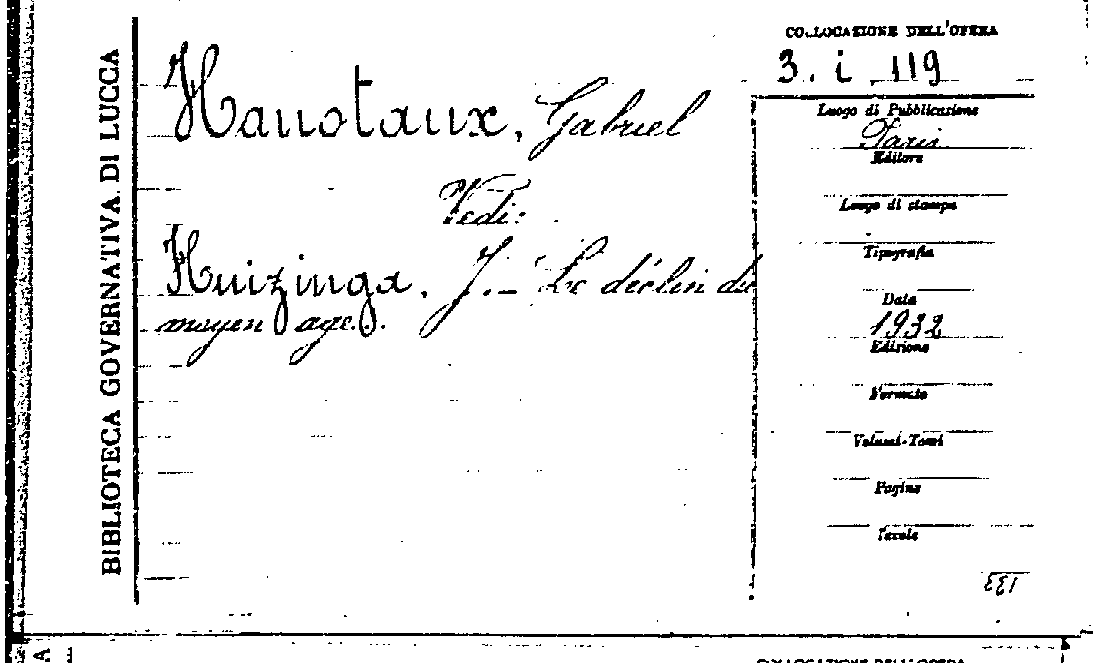 BIBLIOTECA GOVERNATIVA DI LUCCA
COLLOCAZIONE DELL'OPERA
3. i. 119
Hanotaux, Gabriel
Vedi:
Huizinga, J. - Le déclin du
moyen age.
Luogo di Pubblicazione
Paris
Editore
Luogo di stampa
Tipografia
Data
1932
Edizione
Formato
Volumi-Tomi
Pagine
Tavole
133
COLLOCAZIONE DELL'OPERA
A